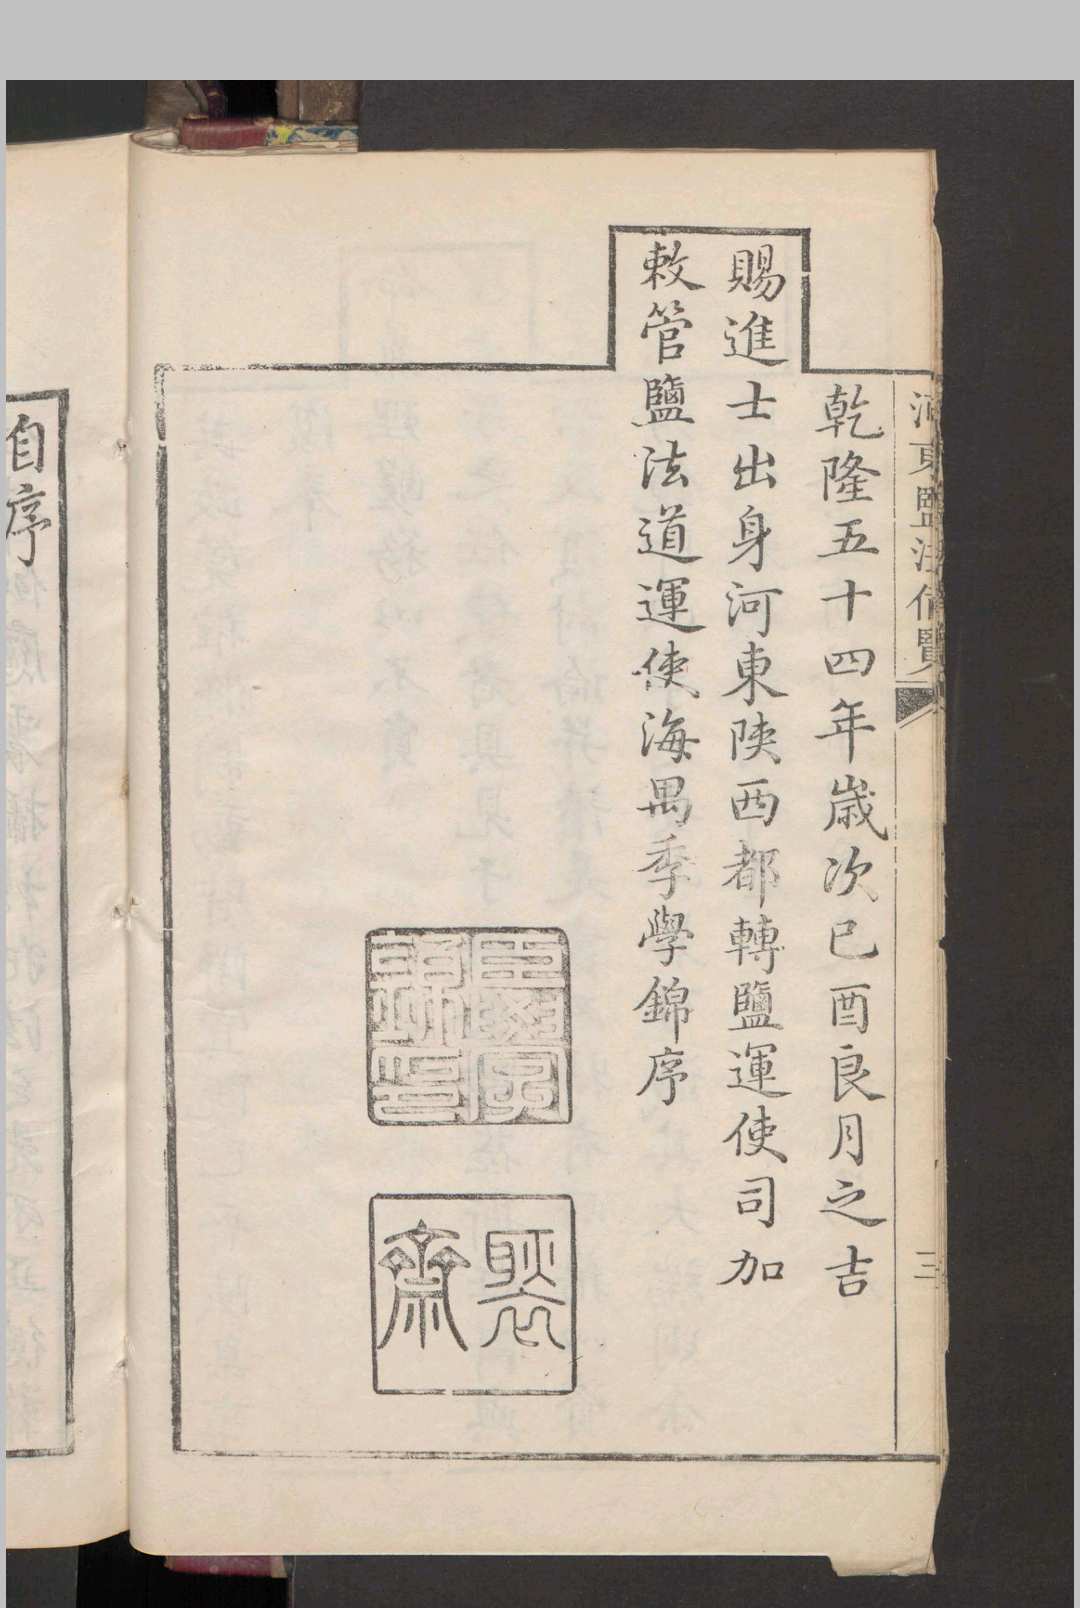 河東鹽法備覽
三
乾隆五十四年歲次己酉良月之吉
賜進士出身河東陝西都轉鹽運使司加
敕管鹽法道運使海禺季學錦序
齋
自序